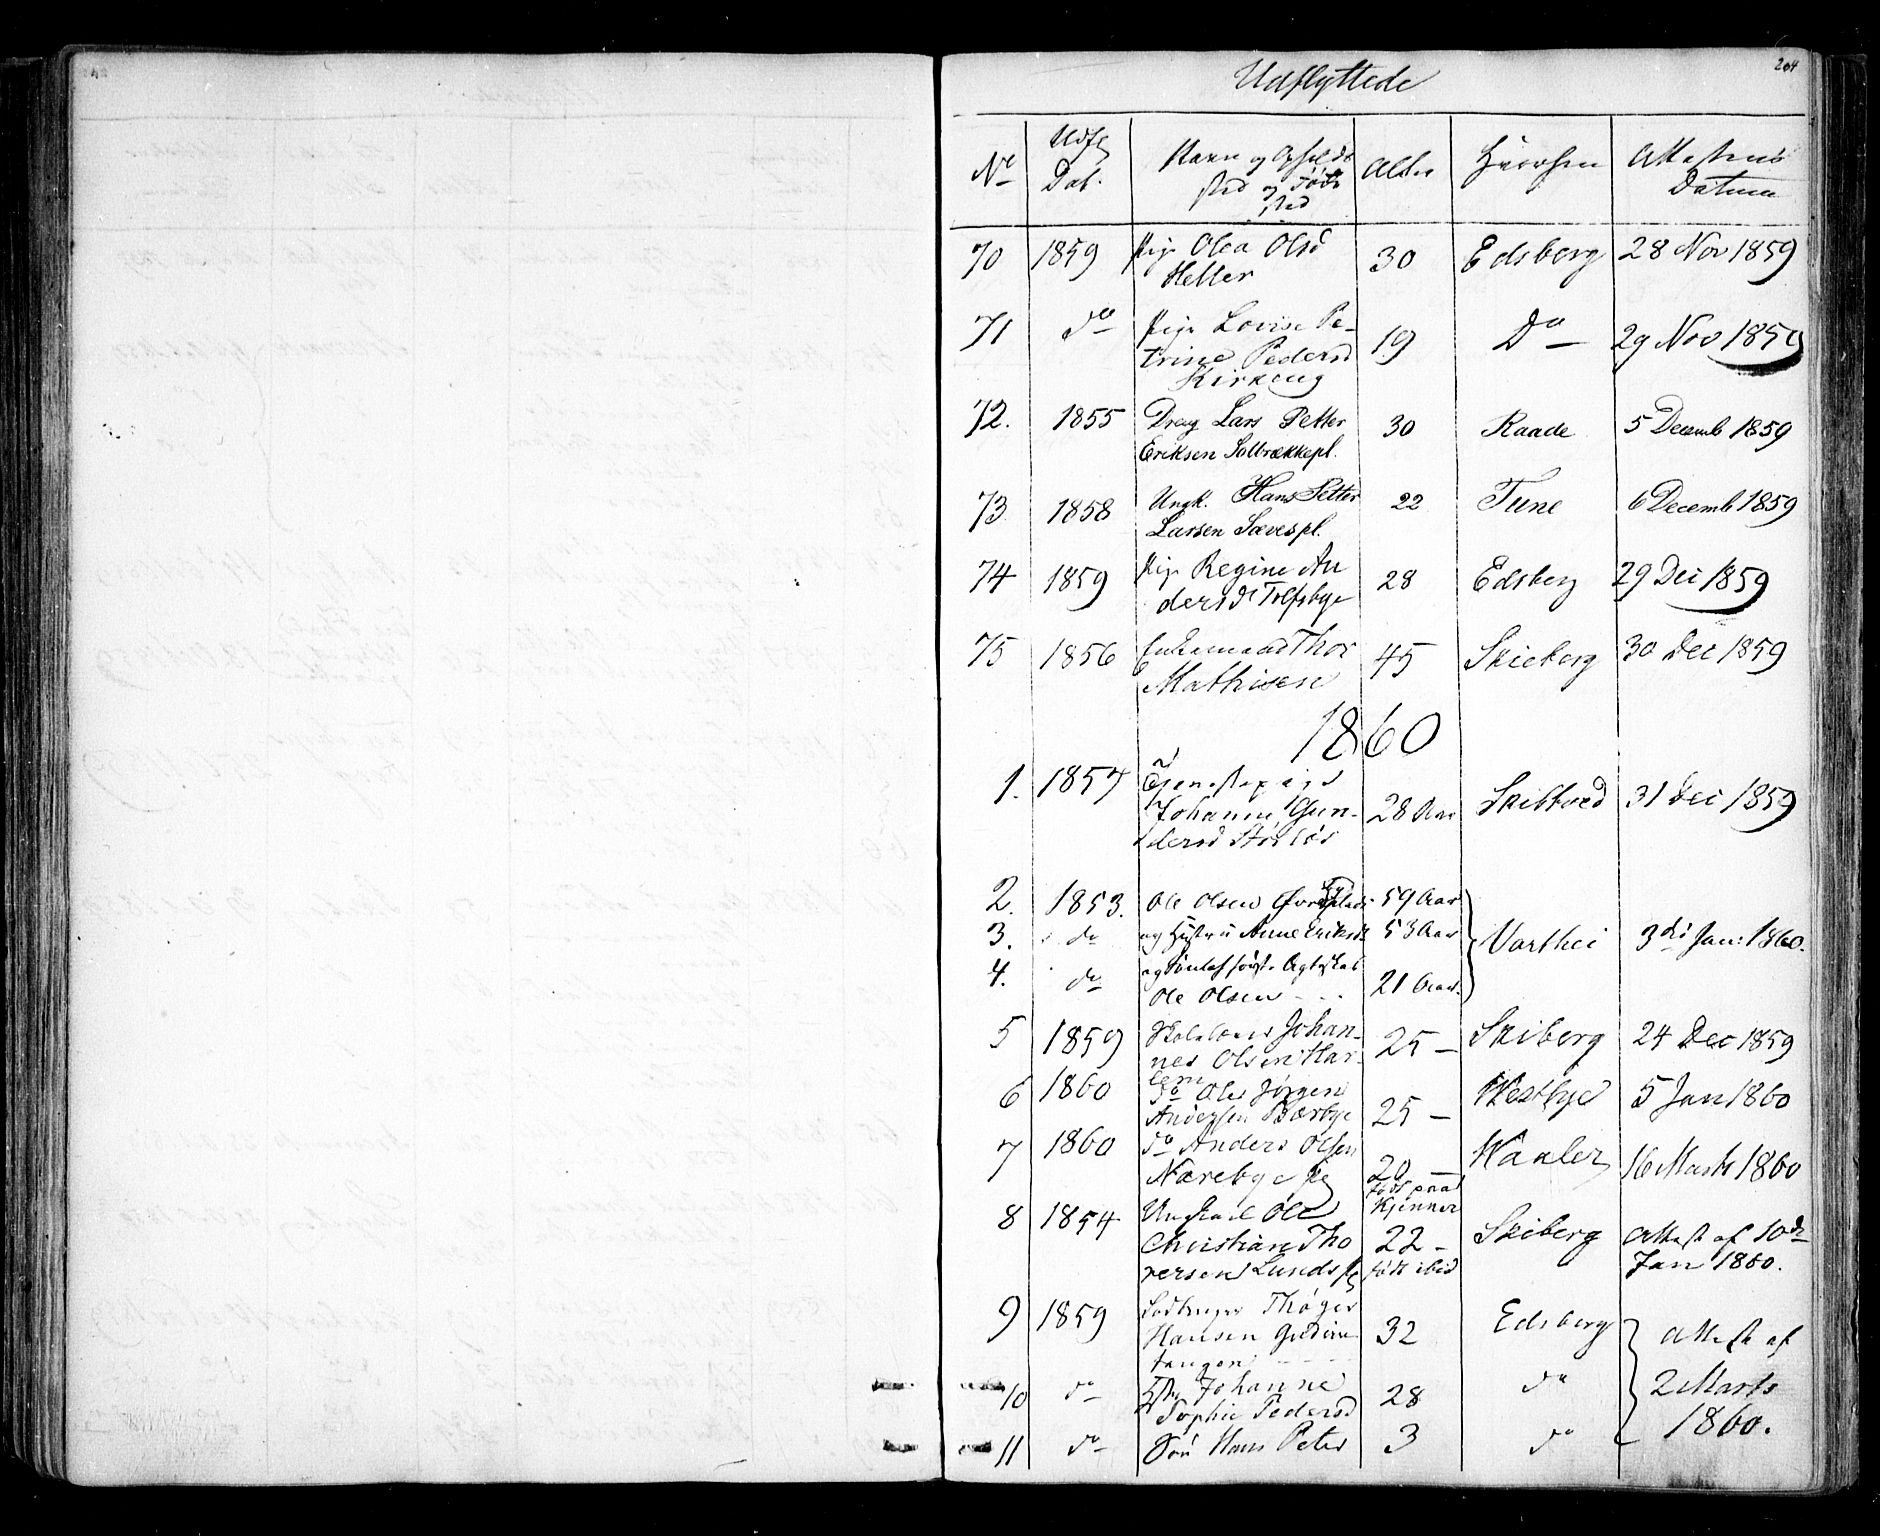 204
Udflyttede
No Udfl Dat. Navn og Opholds sted og Føde sted Alder Hvorhen Attestens Datum
70 1859 Pige Olea Olsd 30 Edsberg 28 Nov 1859
Heller
71 do Pige Lovise Pe- 19 Do 29 Nov 1859
trine Pedersd
Kirkeng
72. 1855 Dreng Lars Petter 30 Raade 5 Decemb 1859
Eriksen Solbrækkepl.
73 1858 Ungk. Hans Petter 22 Tune 6 Decemb 1859
Larsen Sævespl.
74 1859 Pige Regine An 28 Edsberg 29 Dec 1859
dersd Tolfsbye
75 1856 Enkemand Thor 45 Skieberg 30 Dec 1859
Mathisen
1860
1. 1857 Tjenestepige
Johanne Gun- 28 Aar Skibtved 31 Dec 1859
dersd
2. 1853. Ole Olsen 59 Aar
3. do og Hustru Anne Eriksd 53 Aar Varthei 3die Jan: 1860.
4. do og Søn af første Ægteskab
Ole Olsen 21 Aar.
5 1859 Skolelærer Johan- 25 — Skiberg 24 Dec 1859
nes Olsen Har-
lem
6 1860 do Ole Jørgen 25 — Westbye 5 Jan 1860
Andersen Bærbye
7 1860 do Anders Olsen 20 — Hvaler 16 Marts 1860
Nærebye
født paa
Kjennær
8 1854 Ungkarl Ole 22 - Skiberg Attest af 10de
Christian Tho Jan 1860.
rersen Lunds født ibid
9 1859 Thøger 32 Edsberg Attest af
Hansen
tangen
10 do Johanne 28 do 2 Marts
Sophie Pedersd 1860.
11 do Søn Hans Peter 3 do